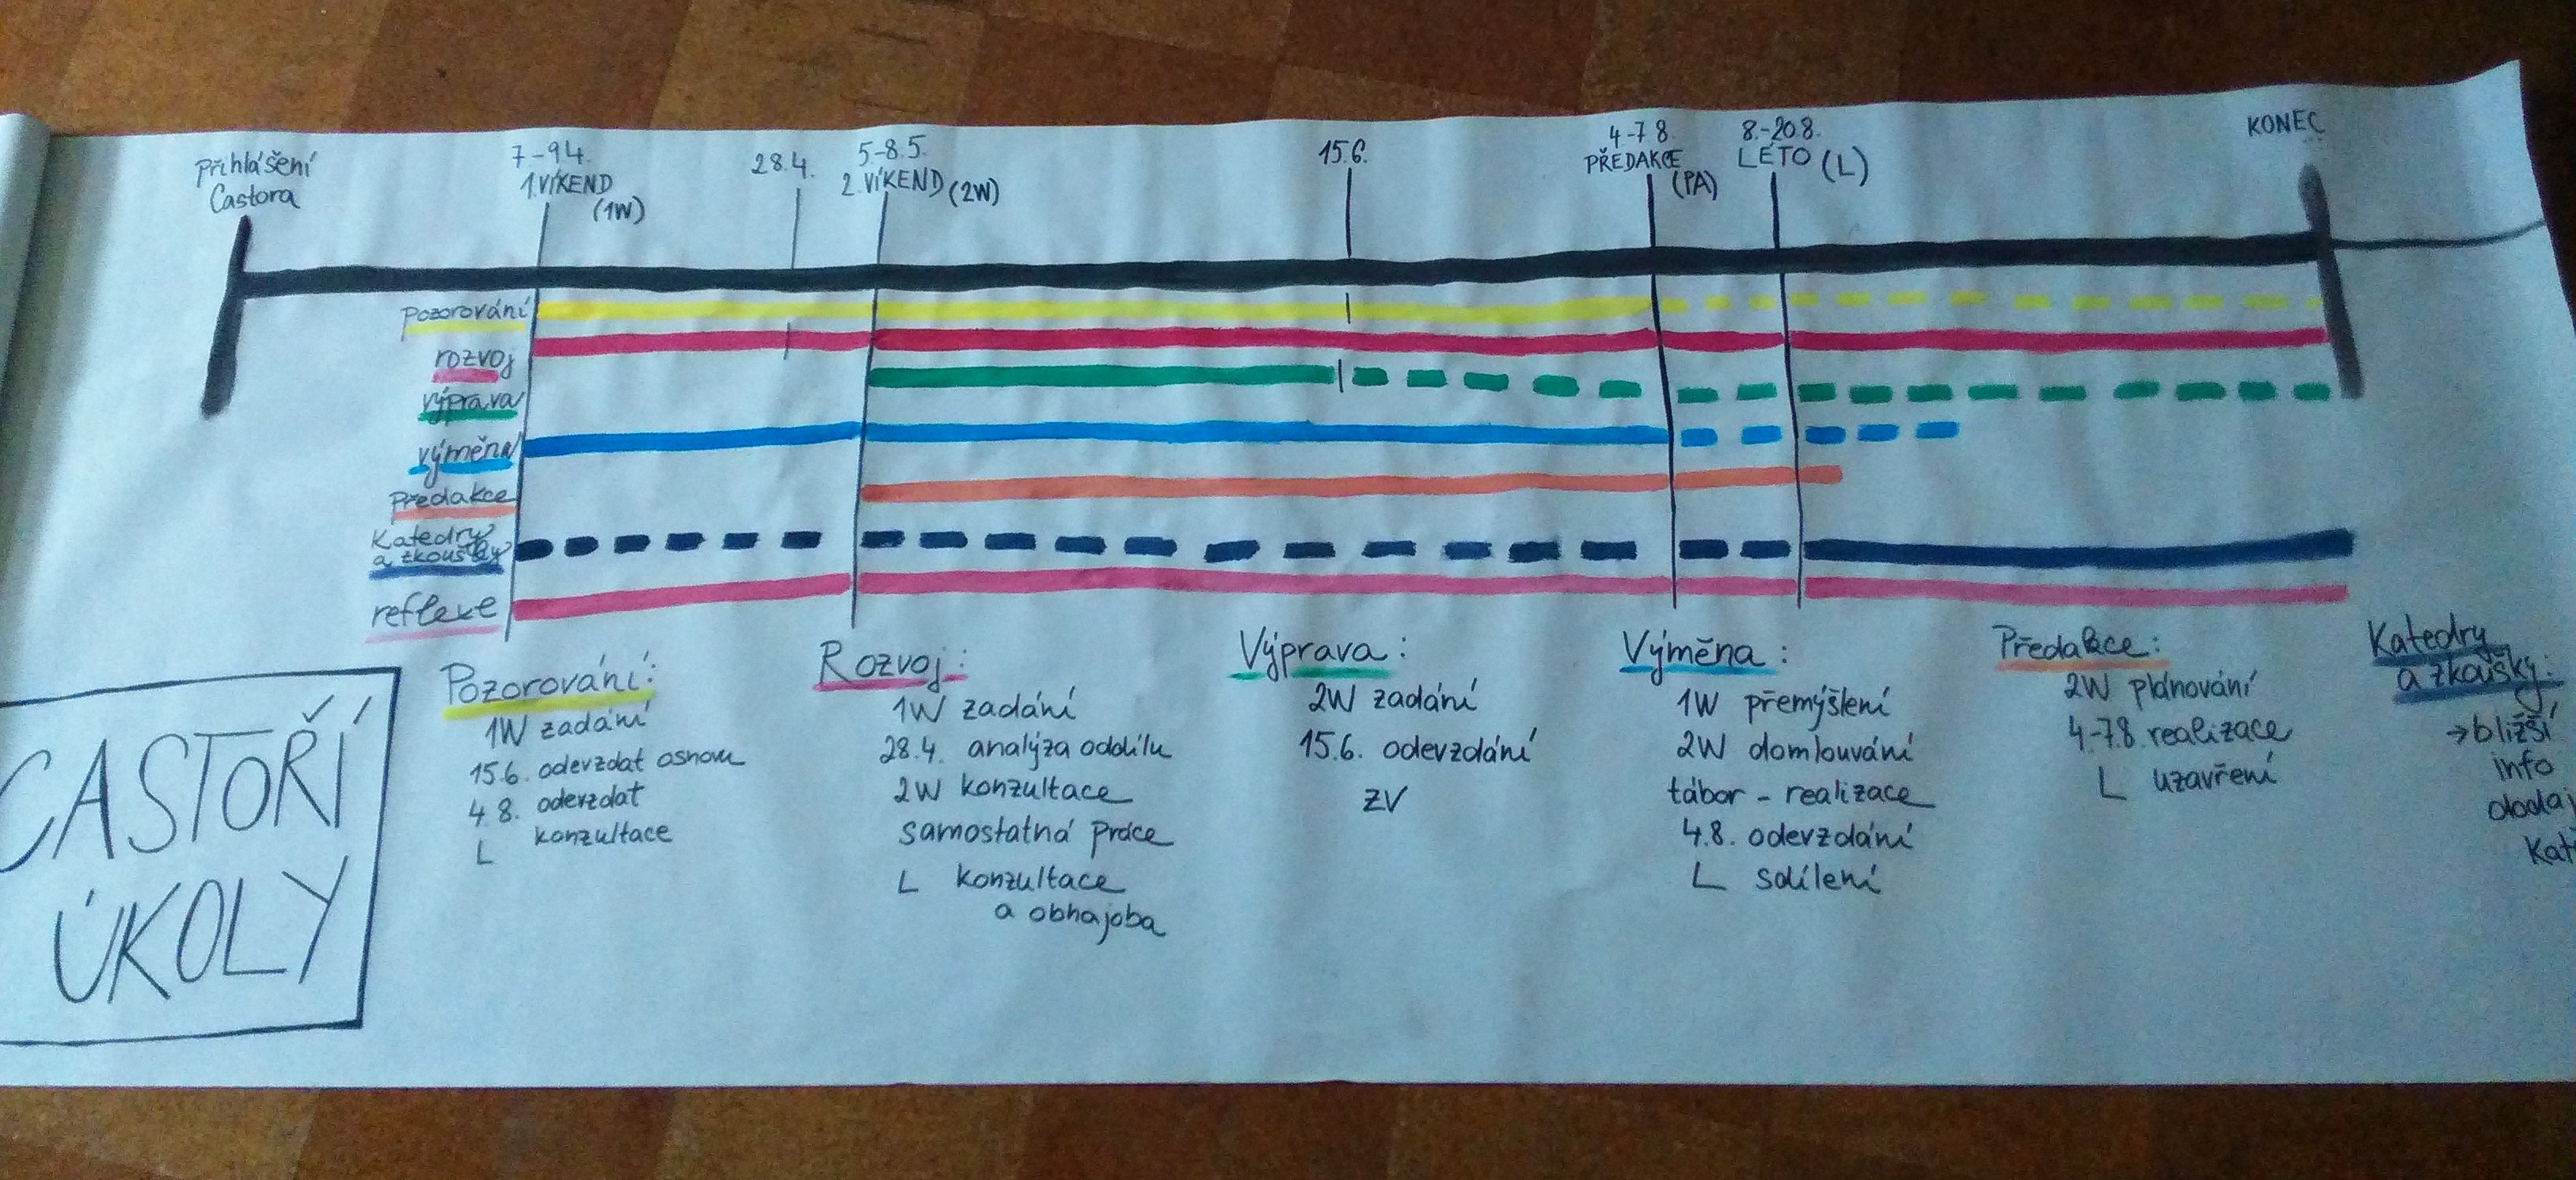 Přihlášení
Castora
7-9.4.
1.VÍKEND
(1W)
28.4.
5-8.5.
2.VÍKEND (2W)
15.6.
4-7.8.
PŘEDAKCE
(PA)
8.-20.8.
LÉTO (L)
KONEC
pozorování
rozvoj
výprava
výměna
Předakce
Katedry
a zkoušky
reflexe
CASTOŘÍ
ÚKOLY
Pozorování:
1W zadání
15.6. odevzdat osnovu
4.8. odevzdat
L konzultace
Rozvoj:
1W zadání
28.4. analýza oddílu
2W konzultace
samostatná práce
L konzultace
a obhajoba
Výprava:
2W zadání
15.6. odevzdání
ZV
Výměna:
1W přemýšlení
2W domlouvání
tábor - realizace
4.8. odevzdání
L sdílení
Předakce:
2W plánování
4-7.8. realizace
L uzavření
Katedry
a zkoušky:
→bližší
info
dodaj
Kat